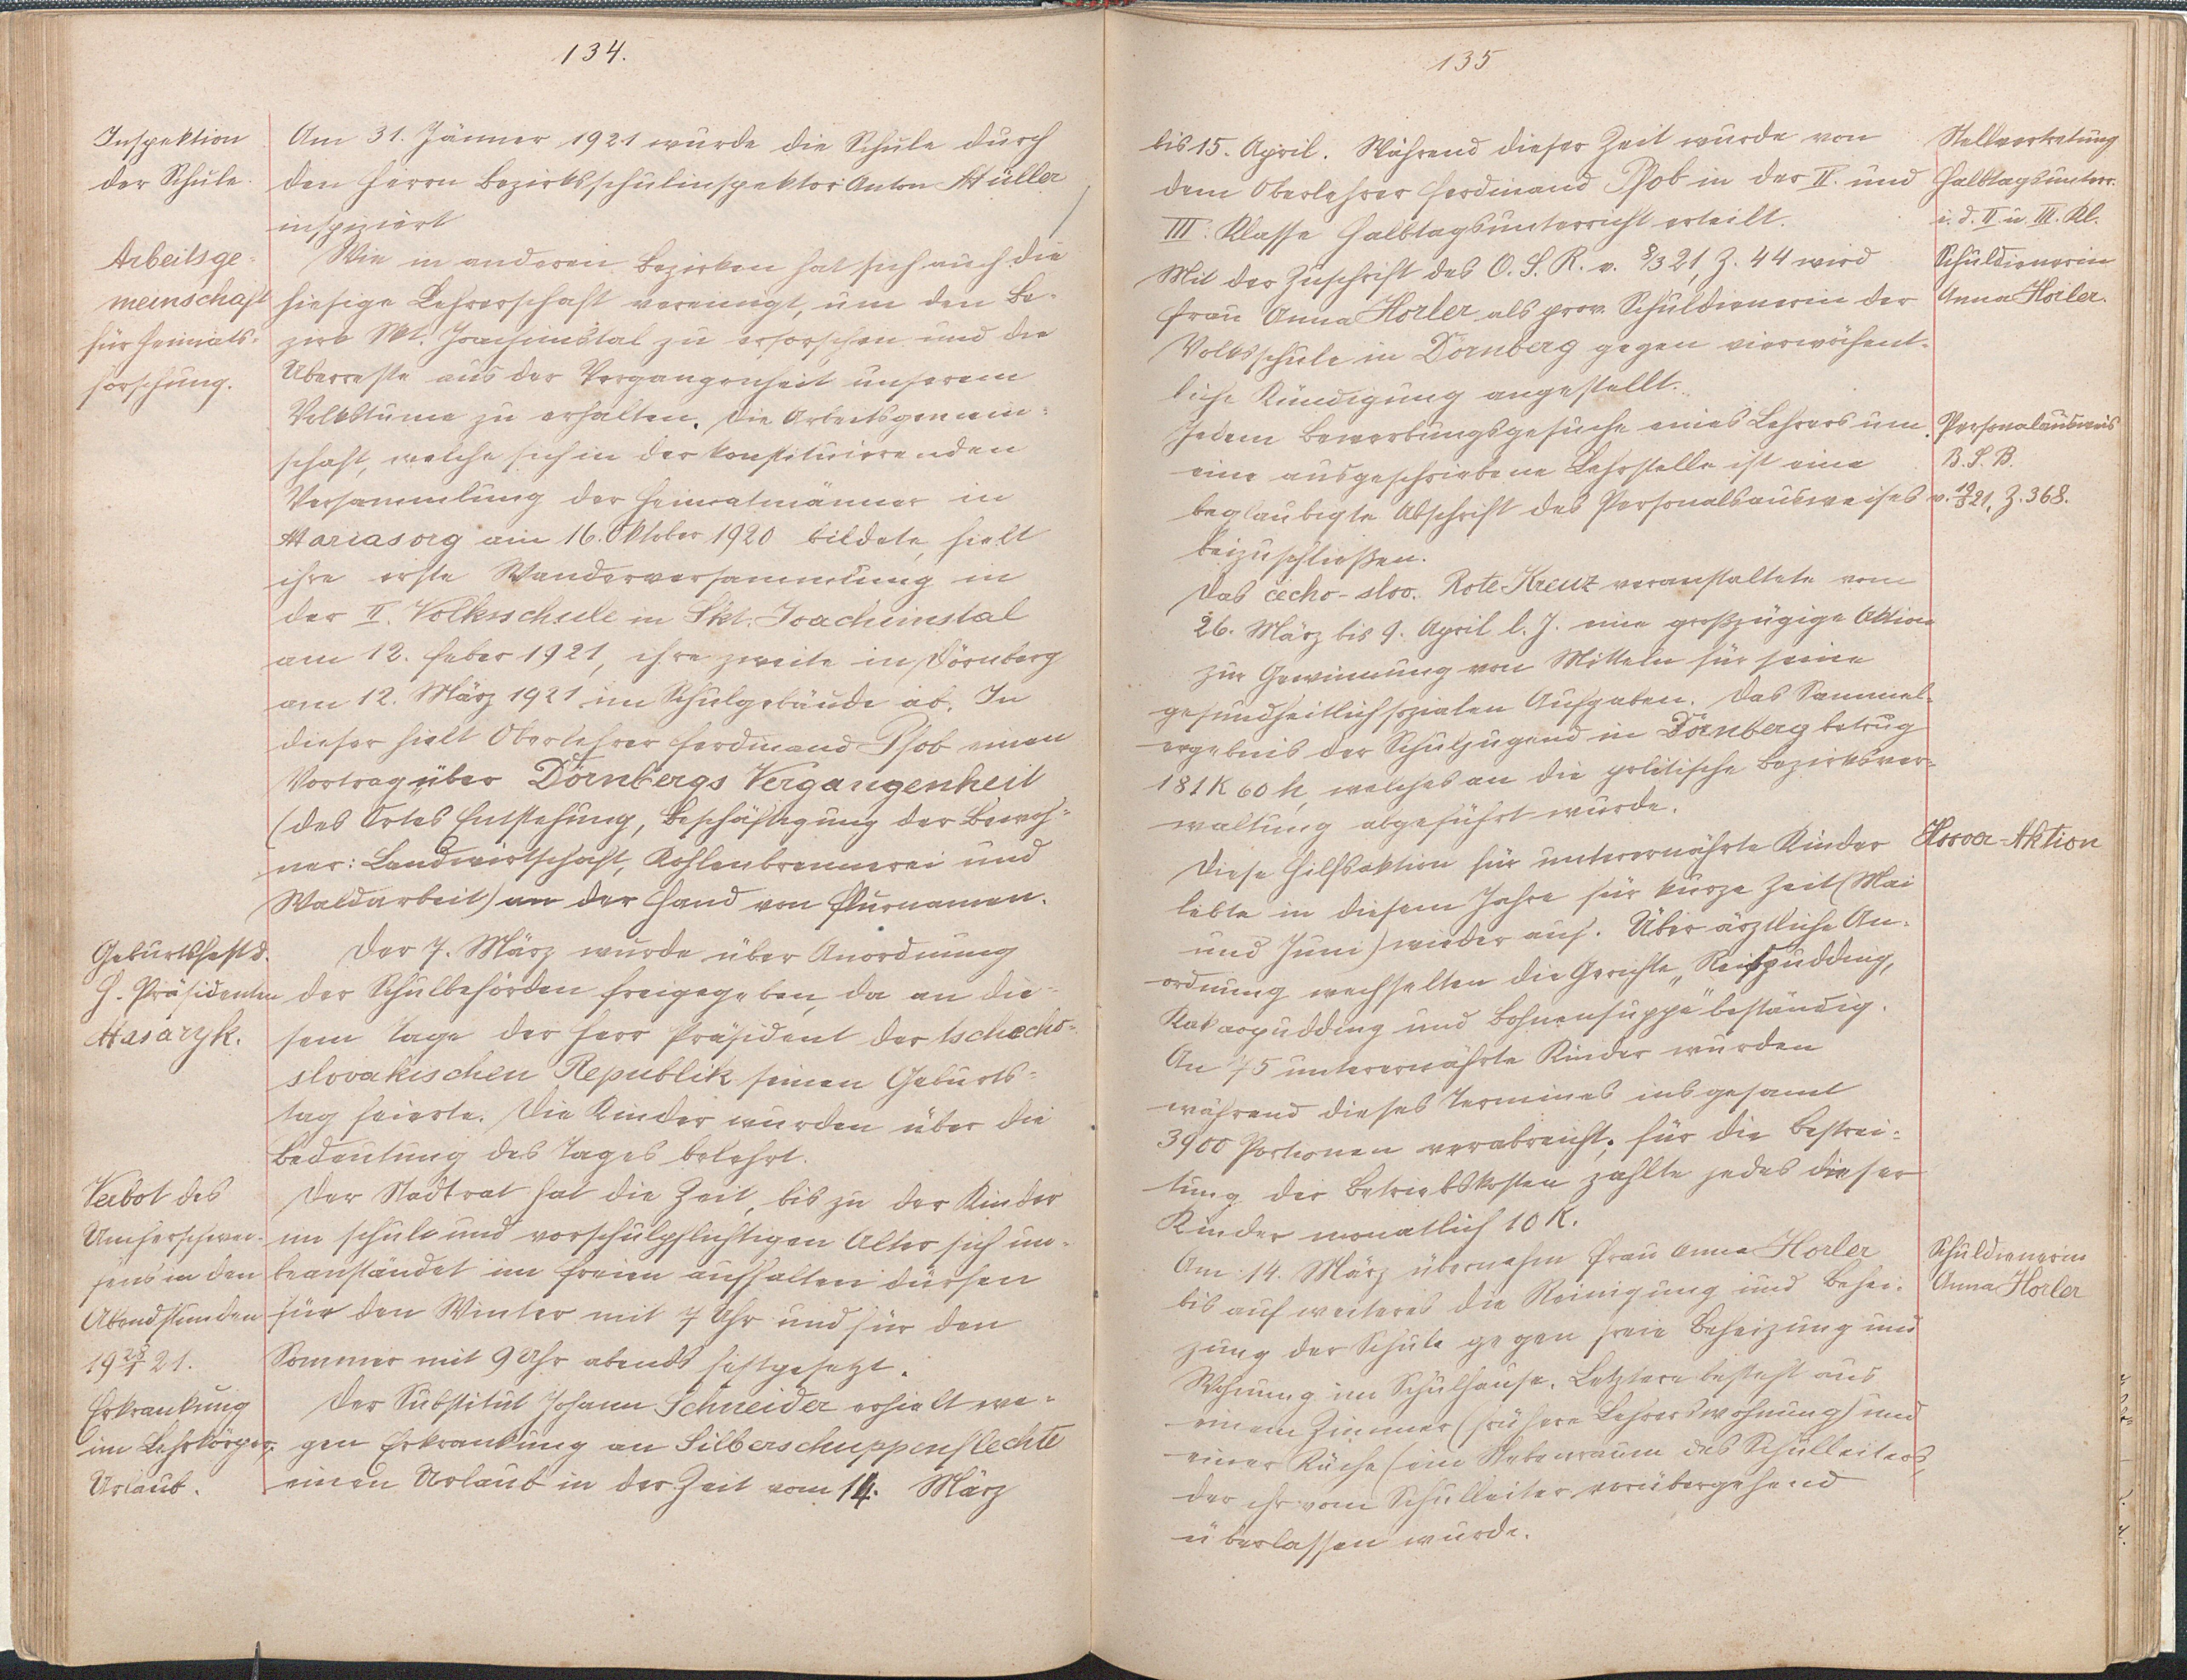 134.
Inspektion
der Schule.
Am 31. Jänner 1921 wurde die Schule durch
den Herrn Bezirksschulinspektor Anton Müller
inspiziert
Arbeitsge-
meinschaft
für Heimats-
forschung.
Wie in anderen Bezirken hat sich auch die
hiesige Lehrerschaft vereinigt, um den Be-
zirk Skt. Joachimstal zu erforschen und die
Überreste aus der Vergangenheit unserem
Volkstume zu erhalten. Die Arbeitsgemein-
schaft, welche sich in der konstituierenden
Versammlung der Heimatmänner in
Mariasorg am 16. Oktober 1920 bildete, hielt
ihre erste Wanderversammlung in
der II. Volksschule in Skt. Joachimstal
am 12. Feber 1921, ihre zweite in Dörnberg
am 12. März 1921 im Schulgebäude ab. In
dieser hielt Oberlehrer Ferdinand Pfob einen
Vortrag über Dörnbergs Vergangenheit
(des Ortes Entstehung, Beschäftigung der Bewoh-
ner: Landwirtschaft, Kohlenbrennerei und
Waldarbeit) an der Hand von Flurnamen.
Geburtsfest d.
H. Präsidenten
Masaryk.
Der 7. März wurde über Anordnung
der Schulbehörden freigegeben, da an die-
sem Tage der Herr Präsident der tschecho-
slovakischen Republik seinen Geburts-
tag feierte. Die Kinder wurden über die
Bedeutung des Tages belehrt.
Verbot des
Umherschwei-
fens in den
Abendstunden
19 25/1 21.
Der Stadtrat hat die Zeit, bis zu der Kinder
im schul- und vorschulpflichtigen Alter sich un-
beanständet im Freien aufhalten dürfen
für den Winter mit 7 Uhr und für den
Sommer mit 9 Uhr abends festgesetzt.
Erkrankung
im Lehrkörper,
Urlaub.
Der Substitut Johann Schneider erhielt we-
gen Erkrankung an Silberschuppenflechte
einen Urlaub in der Zeit vom 14. März
135
bis 15. April. Während dieser Zeit wurde von
dem Oberlehrer Ferdinand Pfob in der II. und
III. Klasse Halbtagsunterricht erteilt.
Stellvertretung
Halbtagsunterr.
i. d. II. u. III. Kl.
Mit der Zuschrift des O. S. R. v. 8/3 21, Z. 44 wird
Frau Anna Horler als prov. Schuldienerin der
Volksschule in Dörnberg gegen vierwöchent-
liche Kündigung angestellt.
Schuldienerin
Anna Horler.
Jedem Bewerbungsgesuche eines Lehrers um
eine ausgeschriebene Lehrstelle ist eine
beglaubigte Abschrift des Personalausweises
beizuschließen.
Personalausweis
B. S. B.
v. 19/3 21, Z. 368.
Das čecho-slov. Rote Kreuz veranstaltete vom
26. März bis 9. April l. J. eine großzügige Aktion
zur Gewinnung von Mitteln für seine
gesundheitlich sozialen Aufgaben. Das Sammel-
ergebnis der Schuljugend in Dörnberg betrug
181 K 60 h, welches an die politische Bezirksver-
waltung abgeführt wurde.
Hoover-Aktion
Diese Hilfsaktion für unterernährte Kinder
lebte in diesem Jahre für kurze Zeit (Mai
und Juni) wieder auf. Über ärztliche An-
ordnung wechselten die Gerichte „Reispudding,
Kakaopudding und Bohnensuppe" beständig.
An 75 unterernährte Kinder wurden
während dieses Termines insgesamt
3900 Portionen verabreicht; für die Bestrei-
tung der Betriebskosten zahlte jedes dieser
Kinder monatlich 10 K.
Am 14. März übernahm Frau Anna Horler
bis auf weiteres die Reinigung und Behei-
zung der Schule gegen freie Beheizung und
Wohnung im Schulhause. Letztere besteht aus
einem Zimmer (frühere Lehrerswohnung) und
einer Küche (ein Nebenraum des Schulleiters,
der ihr vom Schulleiter vorübergehend
überlassen wurde.
Schuldienerin
Anna Horler